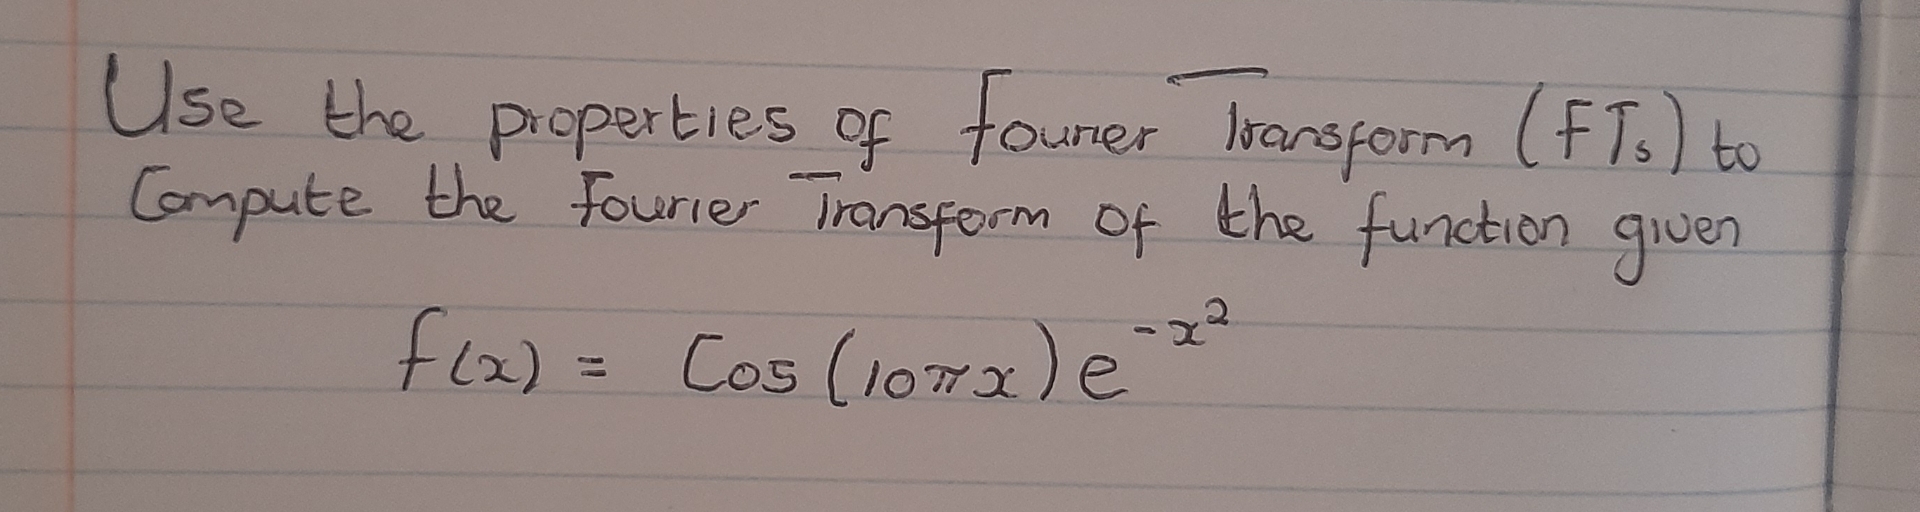 Use the properties of Fourier Transform (FTs) to
Compute the Fourier Transform of the function given
f(x) = Cos(10πx)e^{-x^2}